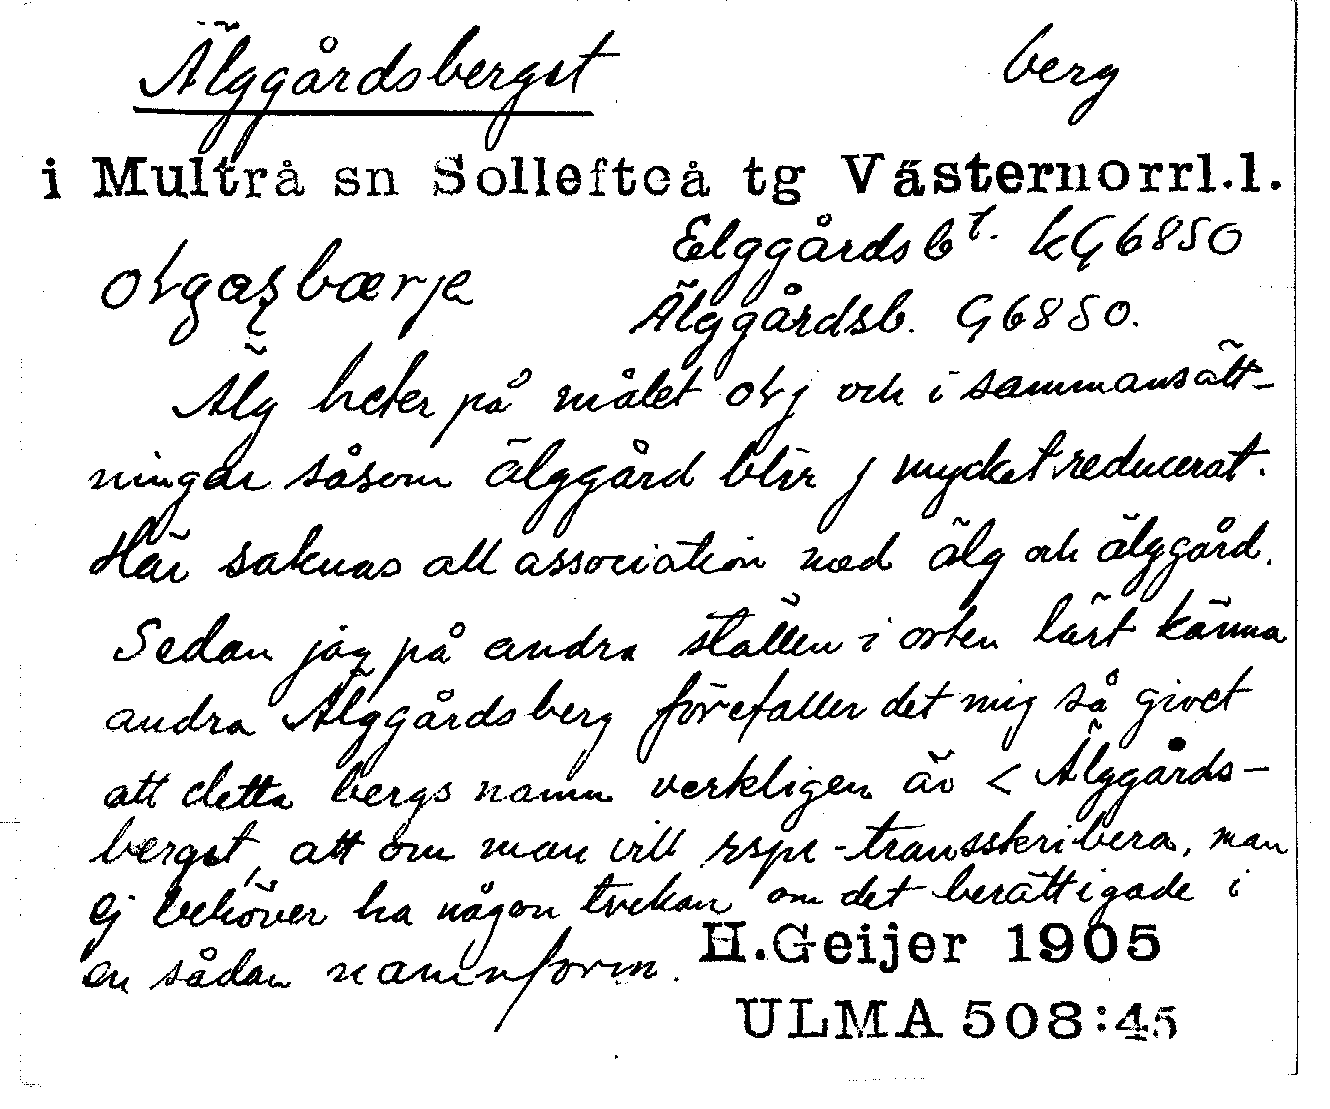 Älggårdsberget berg
i Multrå sn Sollefteå tg Västernorrl.l.
Elggårdsbt. kG6850
Älggårdsb. G6850.
Älg heter på målet och i sammansätt-
ningar såsom älggård blir j mycket reducerat.
Här saknas all association med älg och älggård.
Sedan jag på andra ställen i orten lärt känna
andra Älggårdsberg förefaller det mig så givet
att detta bergs namn verkligen är < Älggårds-
berget, att om man vill rspr-transskribera, man
ej behöver ha någon tvekan om det berättigade i
en sådan namnform.
H.Geijer 1905
ULMA 508:45